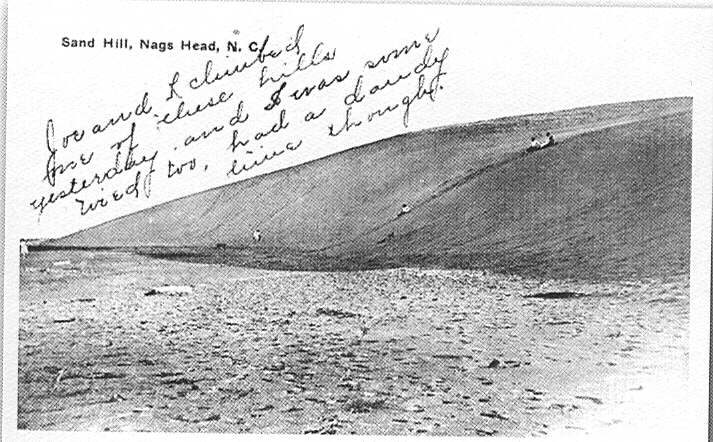 Sand Hill, Nags Head, N. C.
Joe and I climbed
one of these hills
yesterday. and I was some
tired too, had a dandy
time though.